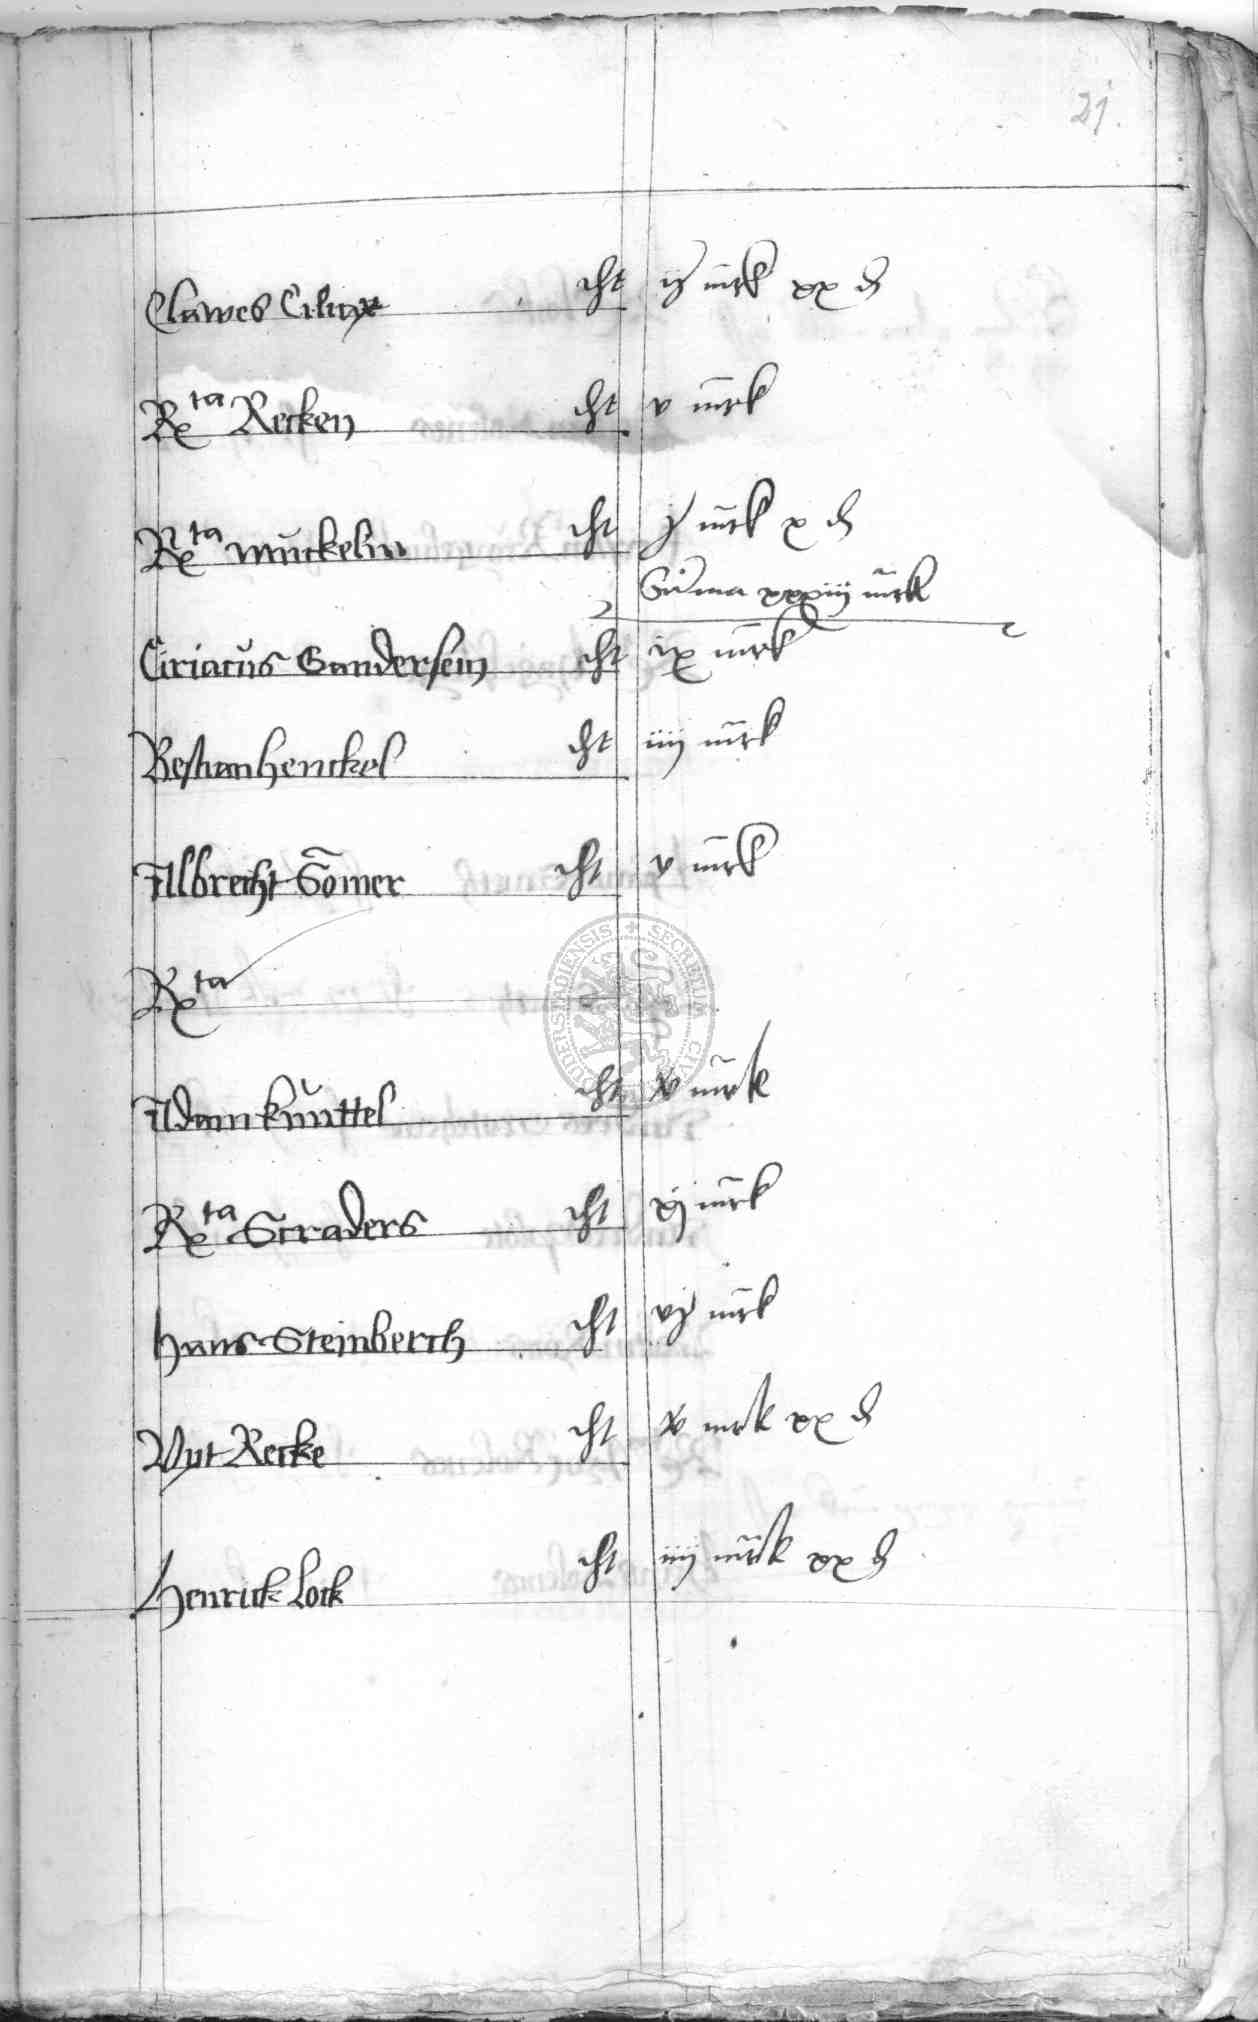 21.
Clawes Cilinx cht ij mrk xx d
Rta Recken cht v mrk
Rta Munckelin cht j mrk x d
Suma xxxiiij mrk
Ciriacus Gundersem cht ix mrk
Bestian Henckel cht iiij mrk
Albrecht Somer cht v mrk
Rta
Adam Knuttel cht v mrk
Rta Straders cht xj mrk
Hans Steinberch cht vj mrk
Vyt Recke cht v mrk xx d
Henrick Lock cht iiij mrk xx d
SECRETUM CIV DUDERSTADIENSIS